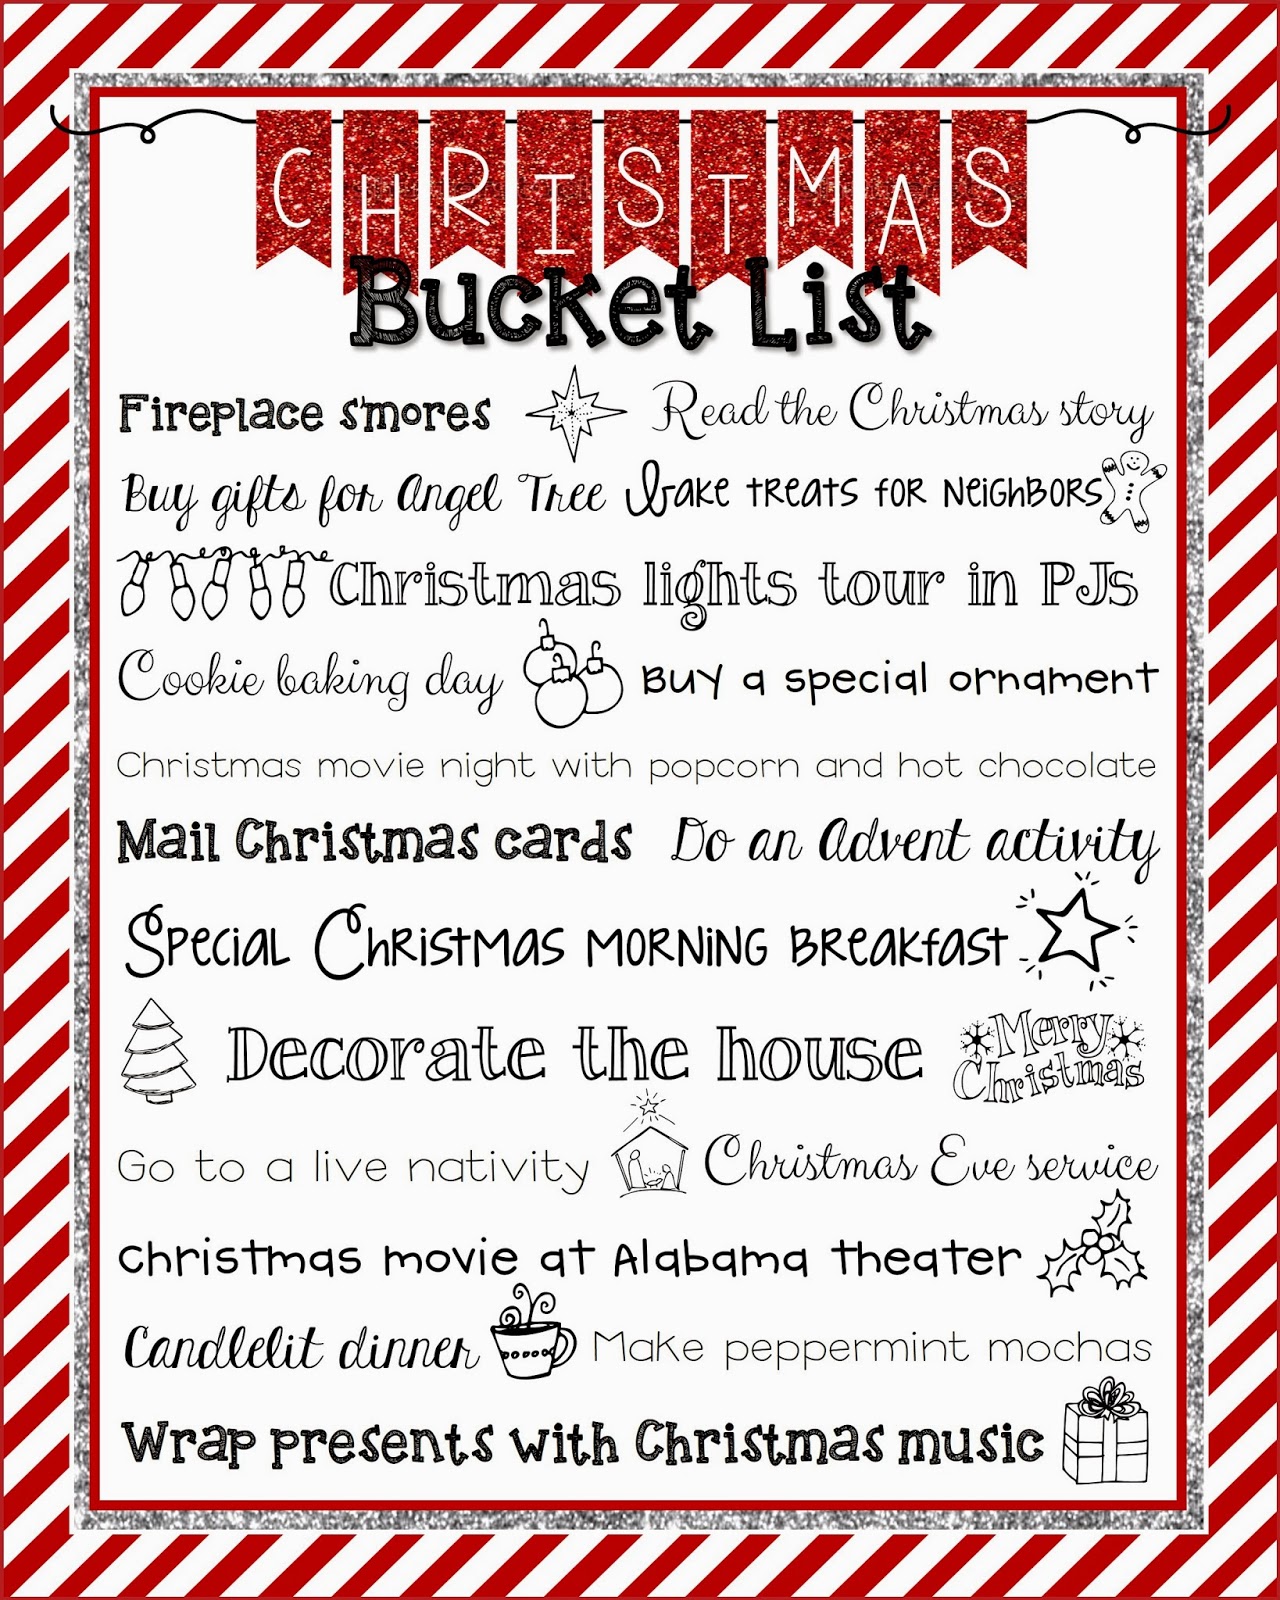 CHRISTMAS
Bucket List
Fireplace s'mores Read the Christmas story
Buy gifts for Angel Tree Bake treats for neighbors
Christmas lights tour in PJs
Cookie baking day Buy a special ornament
Christmas movie night with popcorn and hot chocolate
Mail Christmas cards Do an Advent activity
Special Christmas morning breakfast
Decorate the house Merry Christmas
Go to a live nativity Christmas Eve service
Christmas movie at Alabama theater
Candlelit dinner Make peppermint mochas
Wrap presents with Christmas music